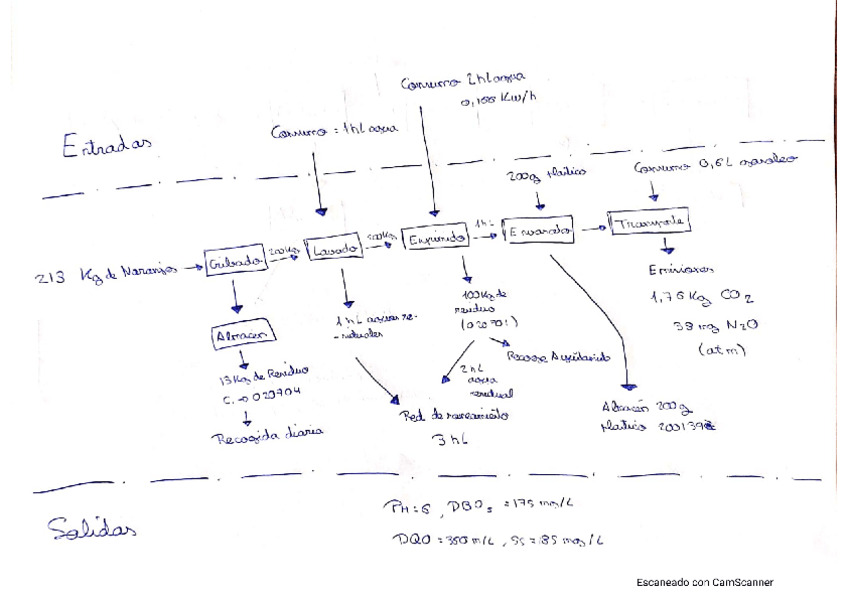 Consumo 2 hL agua
0,166 Kw/h
Entradas
Consumo = 1 hL agua
200g plastico
Consumo 0,6 L gasoleo
213 Kg de Naranjas
Cribado
200Kg
Lavado
200Kg
Exprimido
1 hL
Envasado
Transporte
Almacen
1 hL aguas re-
-siduales
100Kg de
residuo
(020701)
Emisiones
1,76 Kg CO2
38 mg N2O
(atm)
13 Kg de Residuo
C. → 020704
Recogida diaria
2 hL
agua
residual
Recoge
Red de saneamiento
3 hL
Almacén 200g
Plastico 200139
Salidas
PH = 6 , DBO5 = 175 mg/L
DQO = 350 m/L , SS = 85 mg/L
Escaneado con CamScanner